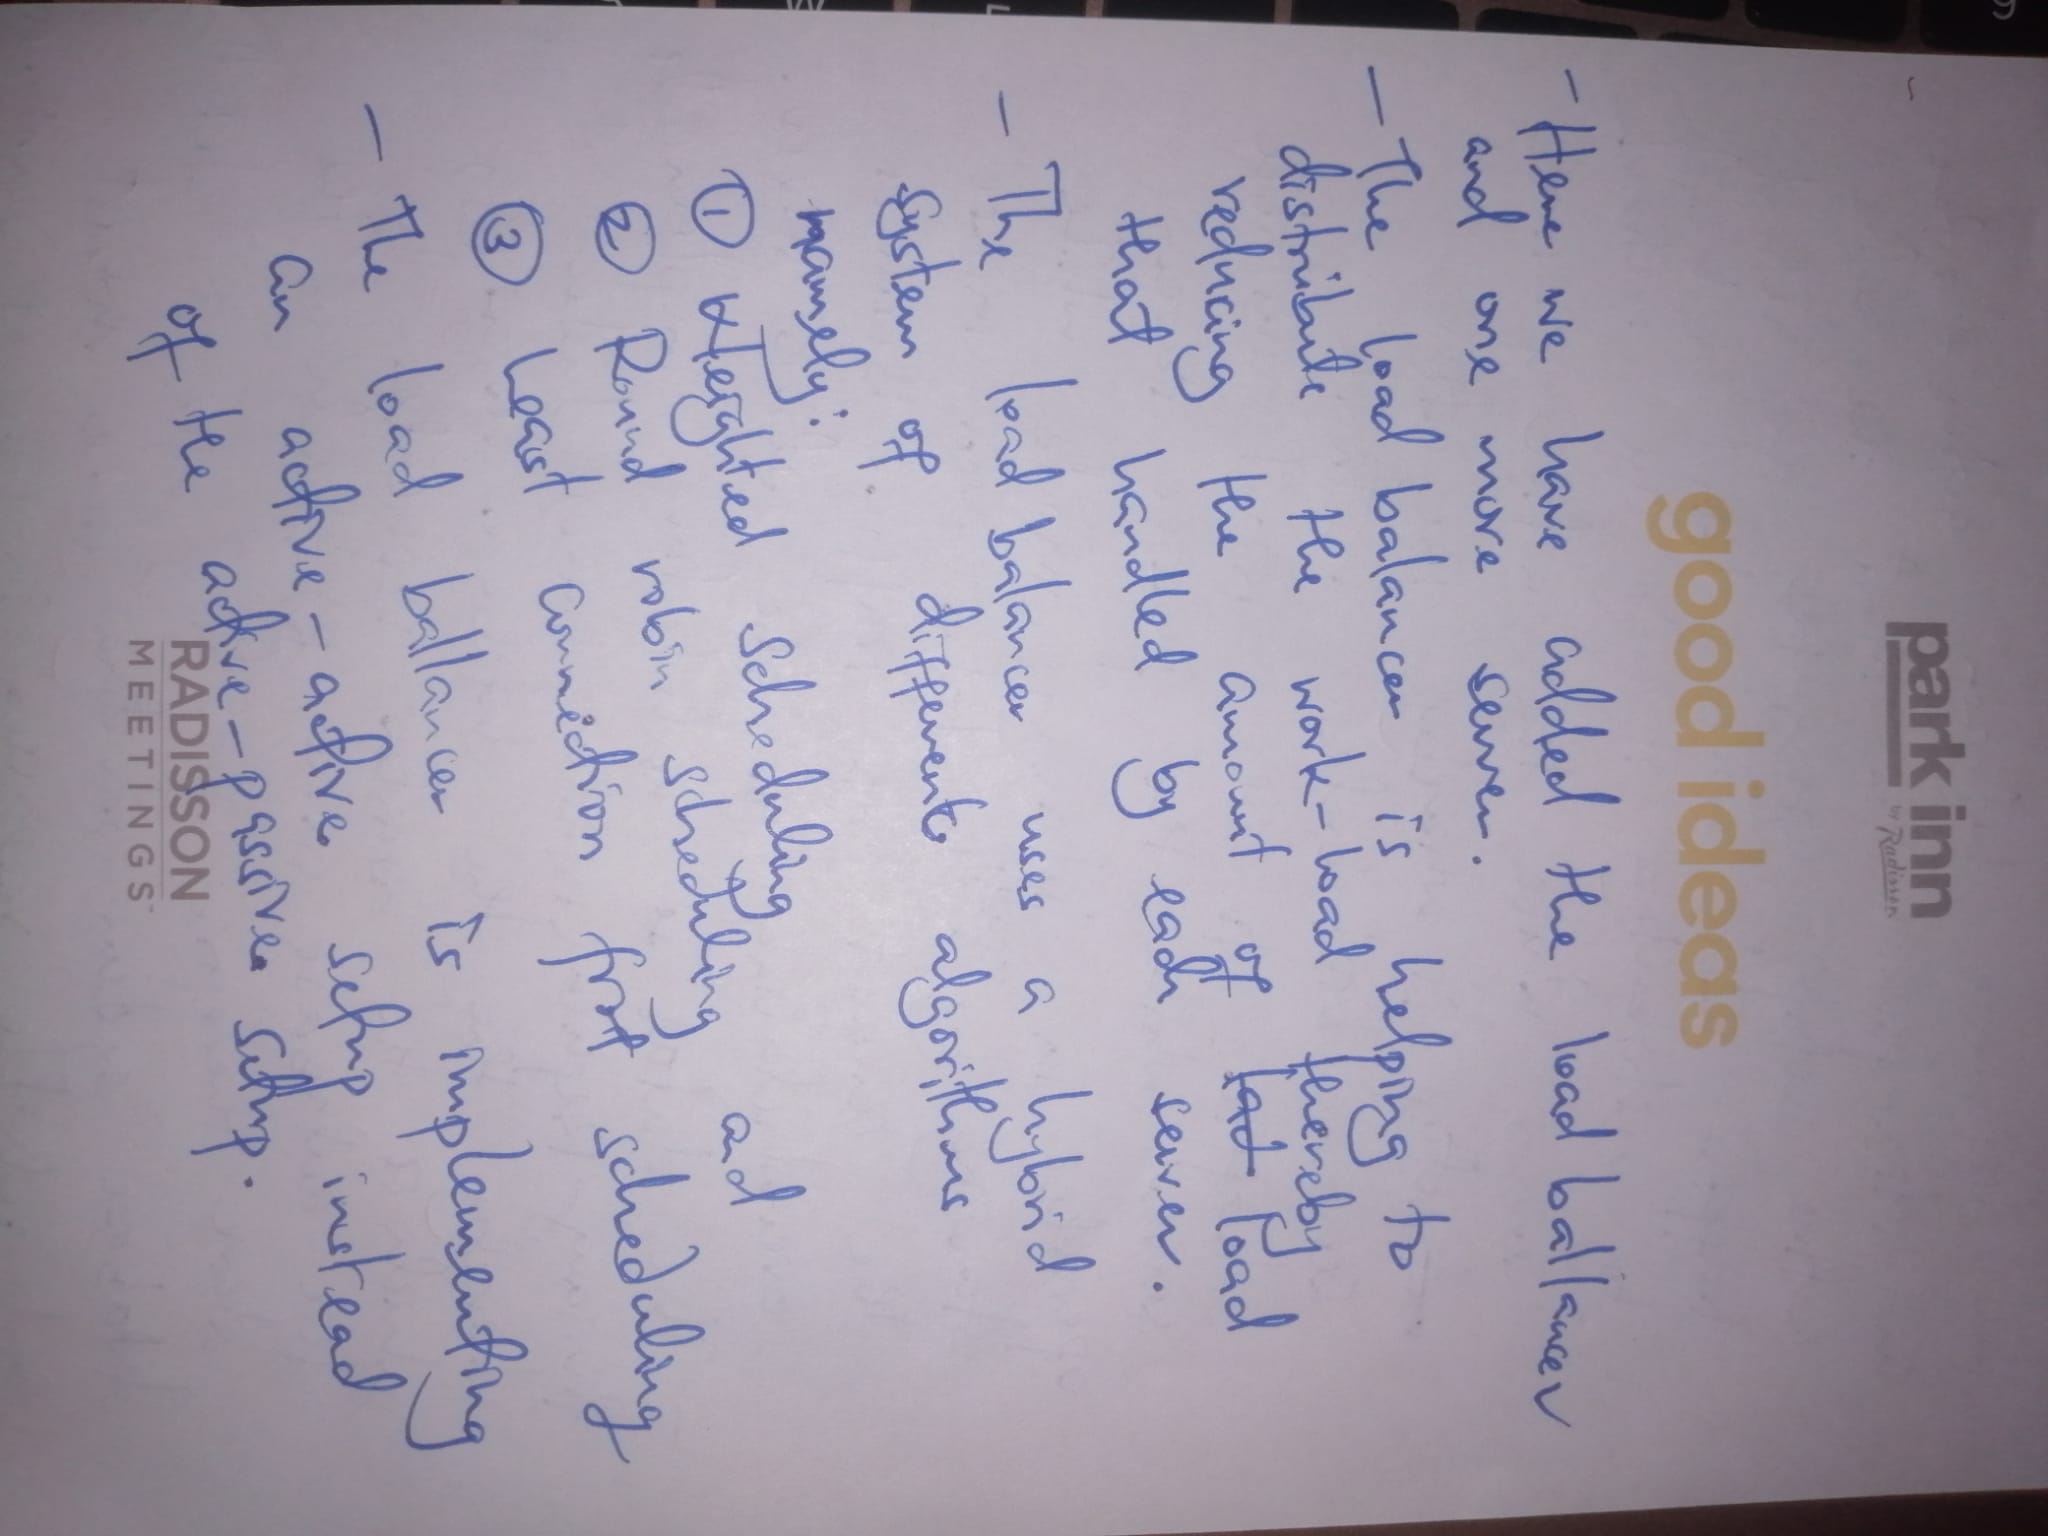 park inn
by Radisson
good ideas
- Here we have added the load ballancer
and one more server.
- The load balancer is helping to
distribute the work-load thereby
reducing the amount of load
that handled by each server.
- The load balancer uses a hybrid
system of differents algorithms
namely:
① Weighted scheduling and
② Round robin scheduling
③ Least connection first scheduling
- The load ballancer is implementing
an active-active setup instead
of the active-passive setup.
RADISSON
MEETINGS